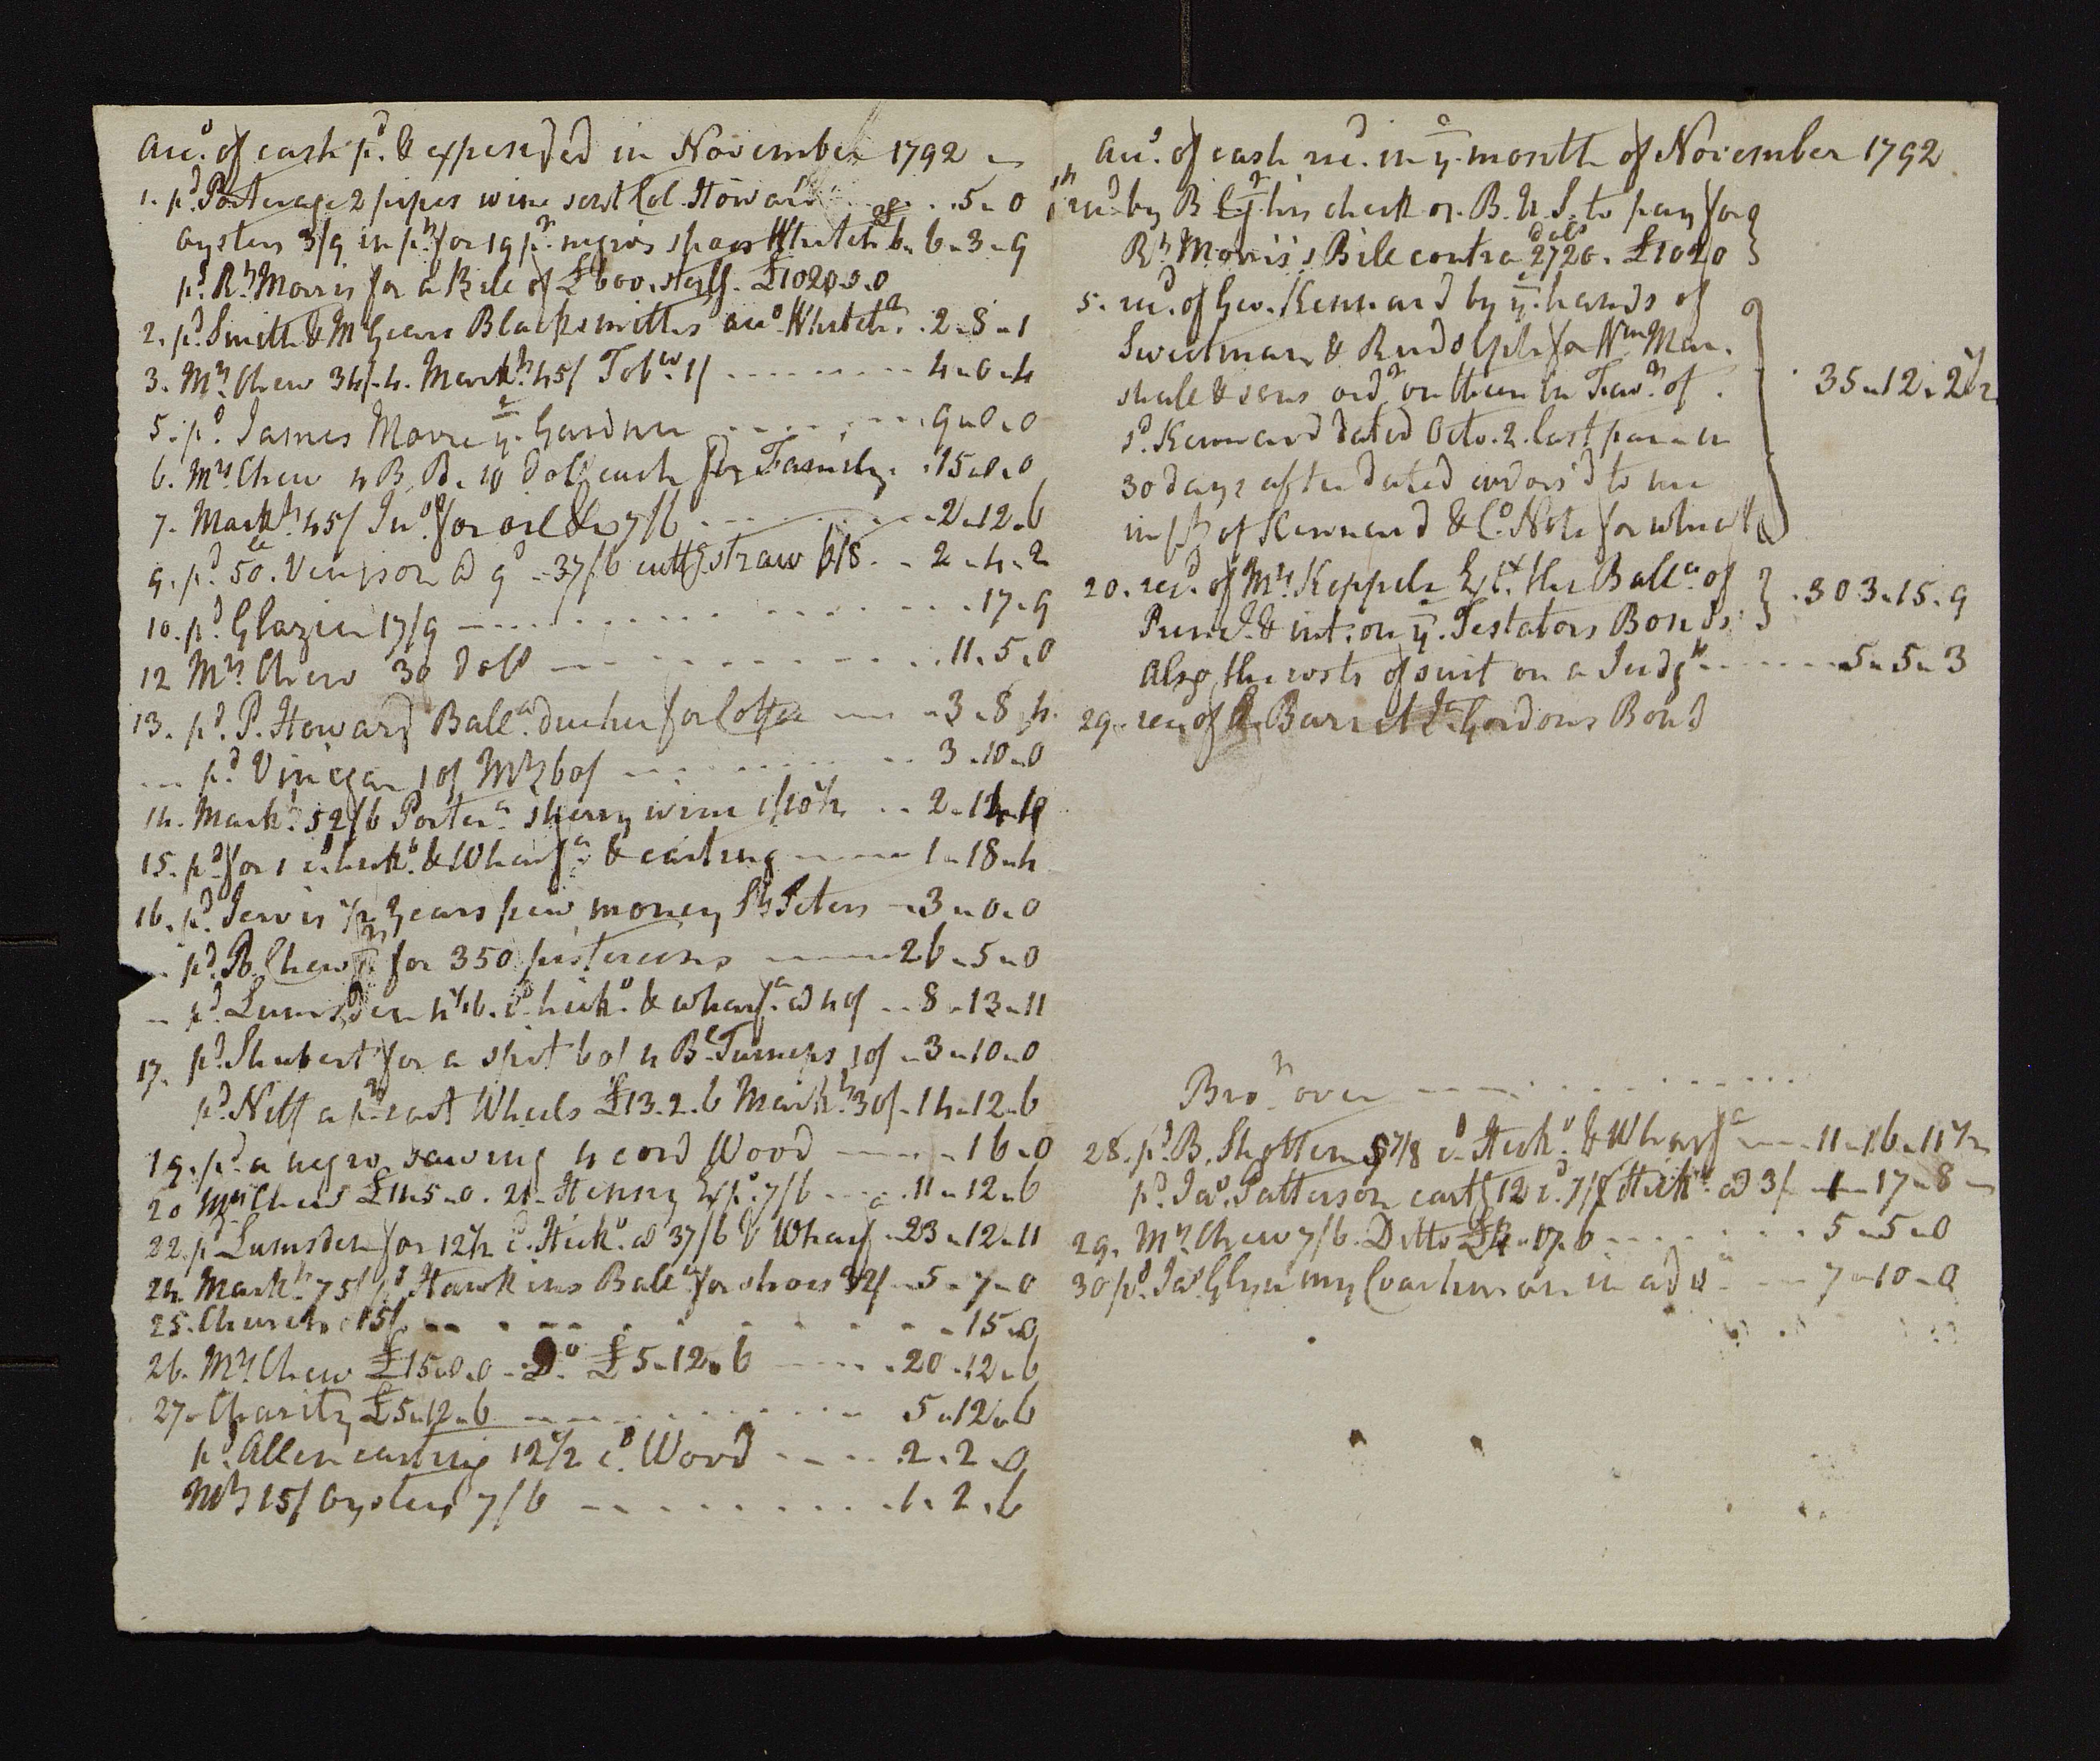 Acco. of cash pd. & expended in November 1792
1. pd. Porterage 2 pipes wine sent Col. Howard .. 5. 0
Oysters 3/9 in pt. for 19 pr. negros shoes Whiteh 6. 6. 3. 9
pd. Rt. Morris for a Bile of £600. sterlg. £1020.0.0
2. pd. Smith & McGears Blacksmiths acco. Whiteh. . 2. 8. 1
3. Mrs. Chew 34/.4. Markt. 45/ Tobo. 1/ - - - - 4. 0. 4
5. pd. James Moore ye. Gardner - - - - 9. 0. 0
6. Mrs. Chew 4 B. B. 10 dolls each for Family . 15. 0. 0
7. Markt. 45/ Jno. for oil &c 7/6 - - - - 2. 12. 6
9. pd. 50 lb. Venison @ 9d. - 37/6 cuttg. straw 6/8 . . 2. 4. 2
10. pd. Glazier 17/9 - - - - . 17. 9
12 Mrs. Chew 30 dolls - - - - . 11. 5. 0
13. pd. P. Howard Balla. due her for Coffee - - 3. 8. 4.
... pd. Vinegar 10/ Mrs 60/ - - - - 3. 10. 0
14. Markt. 52/6 Portera. sherry wine 1/10½ . . 2. 14. 4
15. pd. for 1 cd. hicko. & Wharfa. & carting - - - 1. 18. 4
16. pd. Jervis ½ years pew money St. Peters - 3. 0. 0
.. pd. B. Chew Jr. for 350 pistereens - - - 26. 5. 0
.. pd. Lumsden cd. hicko. & wharfa. @ 40/ .. 8. 13. 11
17. pd. Shubert for a spit 60/ 4 Bl. Turneps 10/ - 3. 10. 0
pd. Neff a pr. cart Wheels £13.2.6 Markt. 30/. 14. 12. 6
19. pd. a negro sawing 4 cord Wood - - - 16. 0
20 Mrs. Chew £11.5.0. 21. Henry Exps. 7/6 - - . 11. 12. 6
22. pd. Lumsden for 12½ cd. Hicko. @ 37/6 & Wharfa. . 23. 12. 11
24. Markt. 75/ pd. Hawkins Balla. for shoes 32/ - 5. 7. 0
25. Church 15/ - - - - . 15. 0
26. Mrs. Chew £15.0.0 . Do. £5.12.6 - - - . 20. 12. 6
27. Charity £5.12.6 - - - - 5. 12. 6
pd. Allen carting 12½ cd. Wood - - - . 2. 2. 0
Mrs 15/ Oysters 7/6 - - - - . 1. 2. 6
Acco. of cash recd. in ye. month of November 1792
recd. by B C Jr. his check on B. U. S. to pay for
Rt. Morris's Bile contra 2720 dols. £1020
5. recd. of Geo. Kennard by ye. hands of
Sweetman & Rudolph for Wm. Mar.
shale & sons ordr. on them in Favr. of
sd. Kennard dated Octo. 2. last paya. in
30 days after dated indors'd to me
in pt. of Kennard & Co. Note for wheat 35. 12. 2½
20. recd. of Mrs. Keppele Exx. the Balla. of
Princl. & int. on ye. Testators Bonds . 303. 15. 9
Also the costs of suit on a Judgt. - - - - 5. 5. 3
29. recd. of A Barrett Jr. Gordons Bond
Brot. over - - - -
28. pd. B. Shetten 5⅞ cd. Hicko. & Wharfa. - - 11. 16. 11½
pd. Jas. Patterson cartg. 12 cd. Hicko. @ 3/ - 1. 17. 8
29. Mrs. Chew 7/6. Ditto £4. 17. 6 - - - - 5. 5. 0
30 pd. Jas. Glyn my Coachman in adva. - - - 7. 10. 0